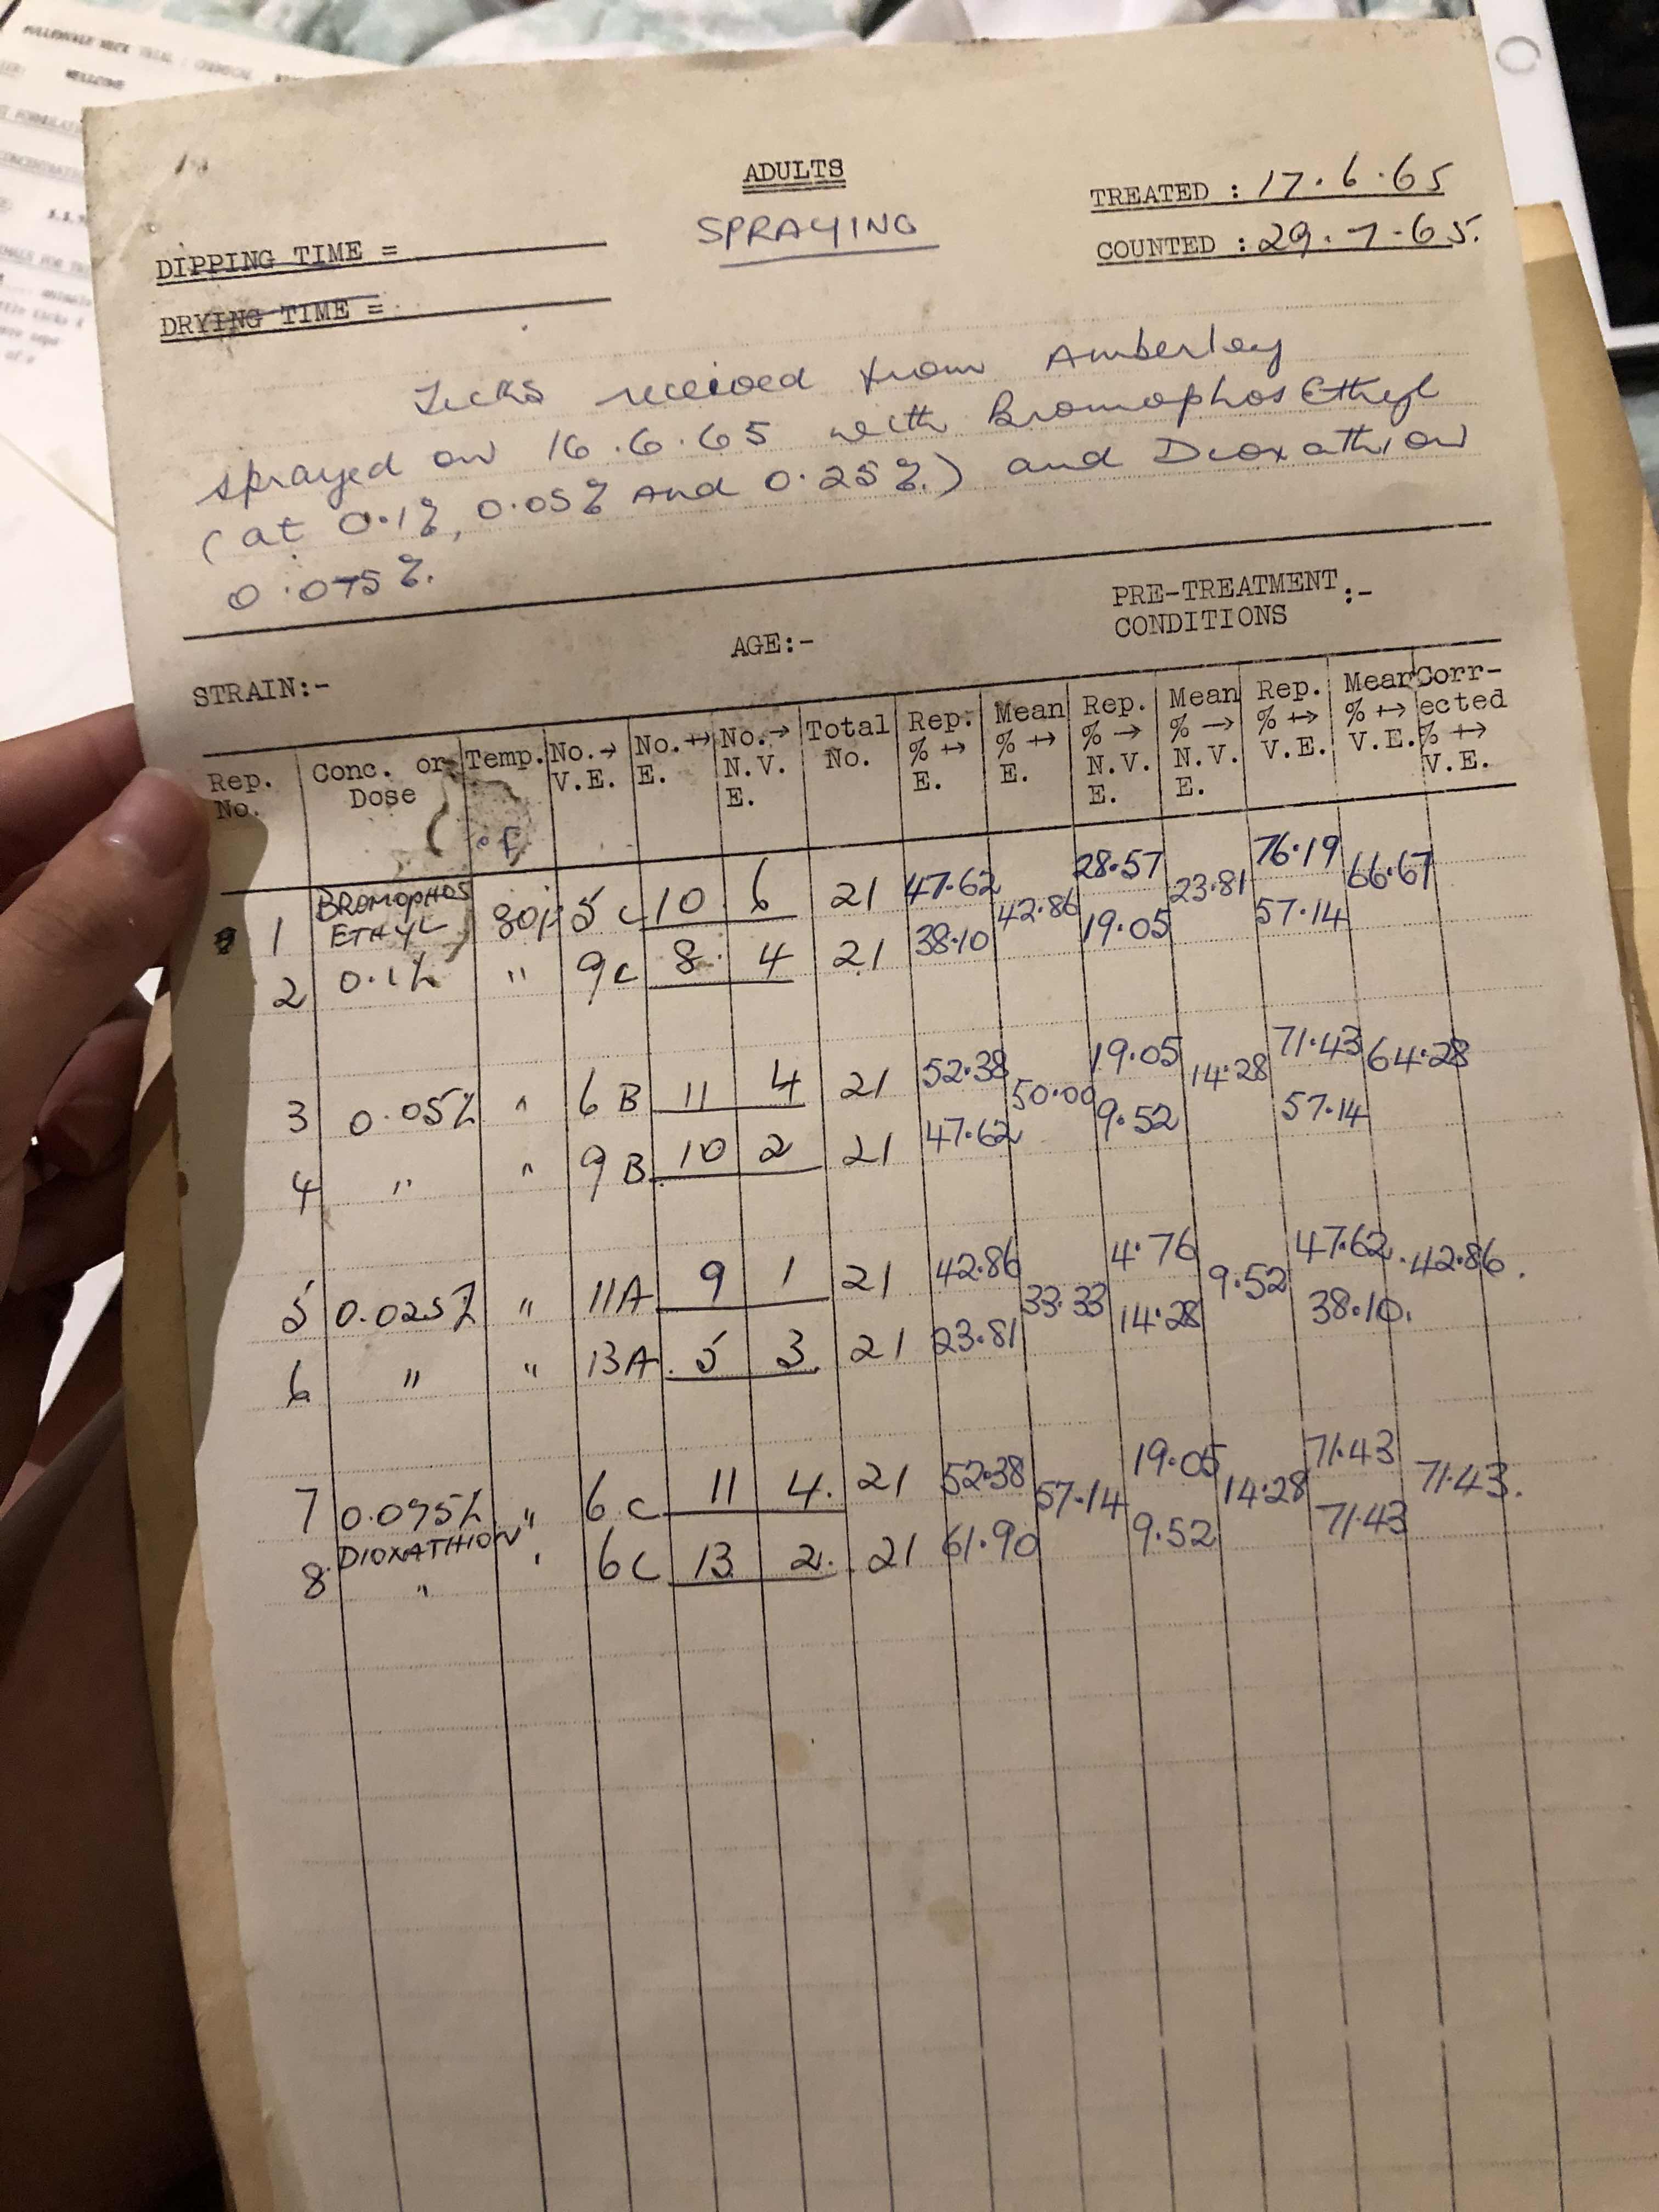 ADULTS
SPRAYING
TREATED : 17.6.65
COUNTED : 29.7.65.
DIPPING TIME =
DRYING TIME =
Ticks received from Amberley
sprayed on 16.6.65 with Bromophos Ethyl
(at 0.1%, 0.05% and 0.25%.) and Dioxathion
0.075%.
PRE-TREATMENT CONDITIONS :-
AGE:-
STRAIN:-
Rep. No. Conc. or Dose Temp. °F No.→ V.E. No.↦ E. No.→ N.V. E. Total No. Rep. % ↦ E. Mean % ↦ E. Rep. % → N.V. E. Mean % → N.V. E. Rep. % ↦ V.E. Mean % ↦ V.E. Corr-ected % ↦ V.E.
1 BROMOPHOS ETHYL 80F 5 C 10 6 21 47.62 42.86 28.57 23.81 76.19 66.67
2 0.1% " 9 C 8 4 21 38.10 19.05 57.14
3 0.05% " 6 B 11 4 21 52.38 50.00 19.05 14.28 71.43 64.28
4 " " 9 B 10 2 21 47.62 9.52 57.14
5 0.025% " 11A 9 1 21 42.86 33.33 4.76 9.52 47.62 42.86.
6 " " 13A 5 3 21 23.81 14.28 38.10.
7 0.075% " 6 C 11 4. 21 52.38 57.14 19.05 14.28 71.43 71.43.
DIOXATHION
8 " " 6 C 13 2. 21 61.90 9.52 71.43
TRIAL : CHEMICAL
WELLCOME